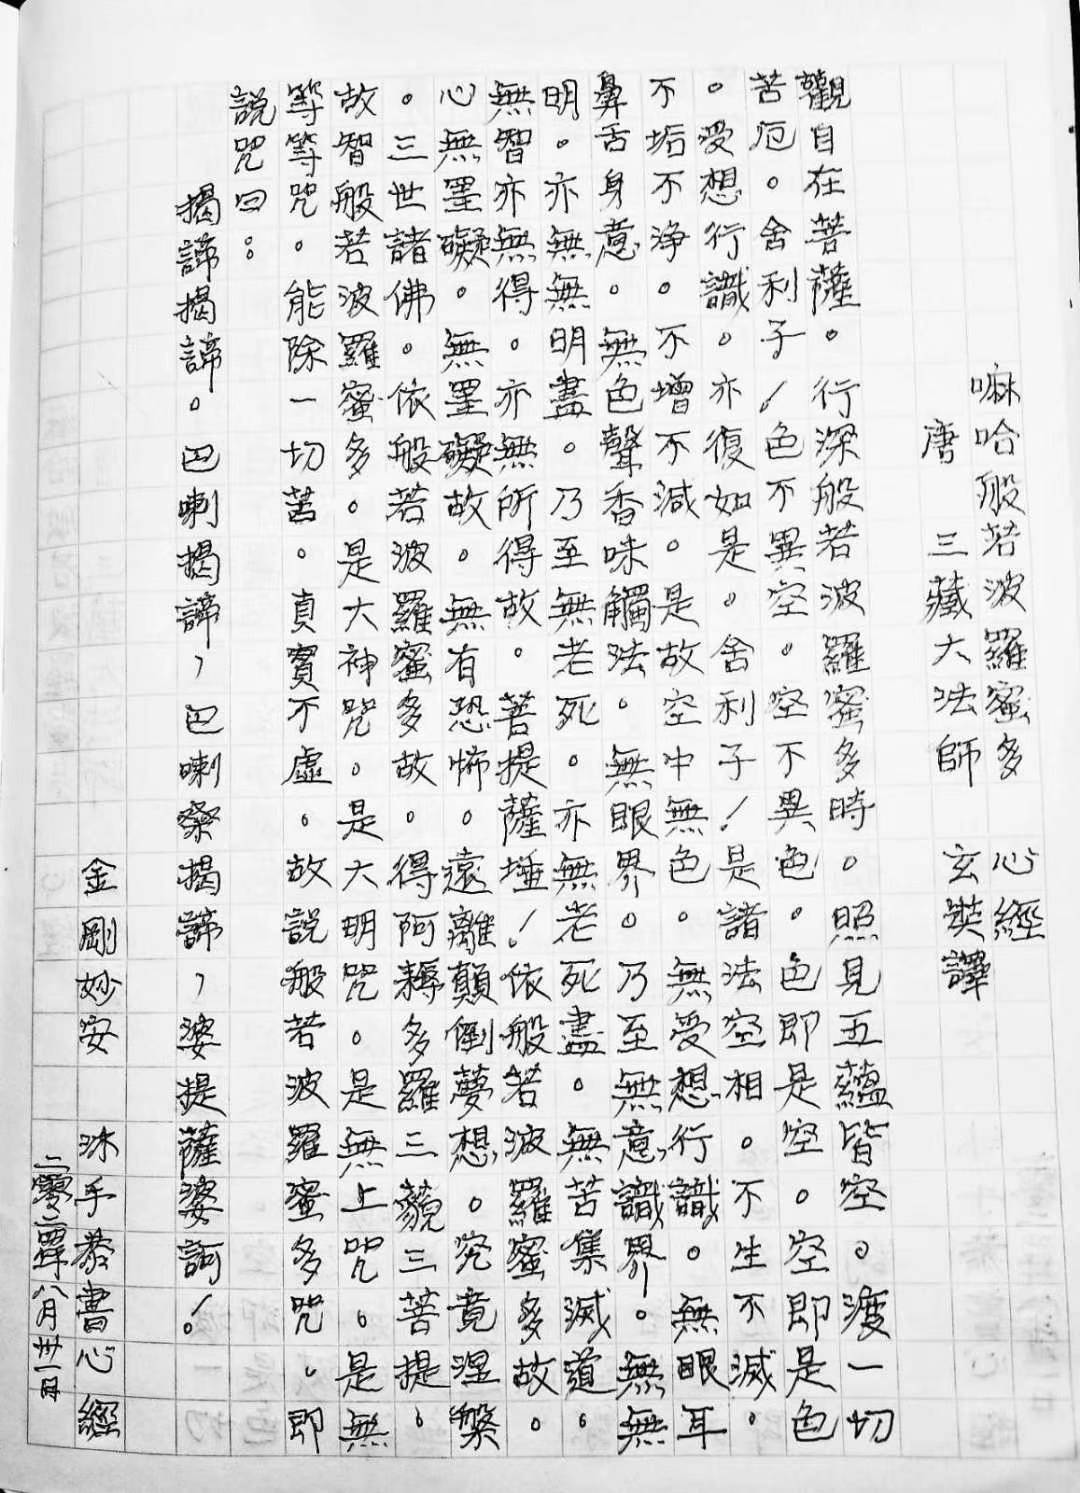 嘛哈般若波羅蜜多心經
唐三藏大法師玄奘譯
觀自在菩薩。行深般若波羅蜜多時。照見五蘊皆空。渡一切
苦厄。舍利子！色不異空。空不異色。色即是空。空即是色
。受想行識。亦復如是。舍利子！是諸法空相。不生不滅。
不垢不淨。不增不減。是故空中無色。無受想行識。無眼耳
鼻舌身意。無色聲香味觸法。無眼界。乃至無意識界。無無
明。亦無無明盡。乃至無老死。亦無老死盡。無苦集滅道。
無智亦無得。亦無所得故。菩提薩埵！依般若波羅蜜多故。
心無罣礙。無罣礙故。無有恐怖。遠離顛倒夢想。究竟涅槃
。三世諸佛。依般若波羅蜜多故。得阿耨多羅三藐三菩提。
故智般若波羅蜜多。是大神咒。是大明咒。是無上咒。是無
等等咒。能除一切苦。真實不虛。故說般若波羅蜜多咒。即
說咒曰：
揭諦揭諦。巴喇揭諦，巴喇桑揭諦，婆提薩婆訶！。
金剛妙安 沐手恭書心經
二零二四年八月卅一日